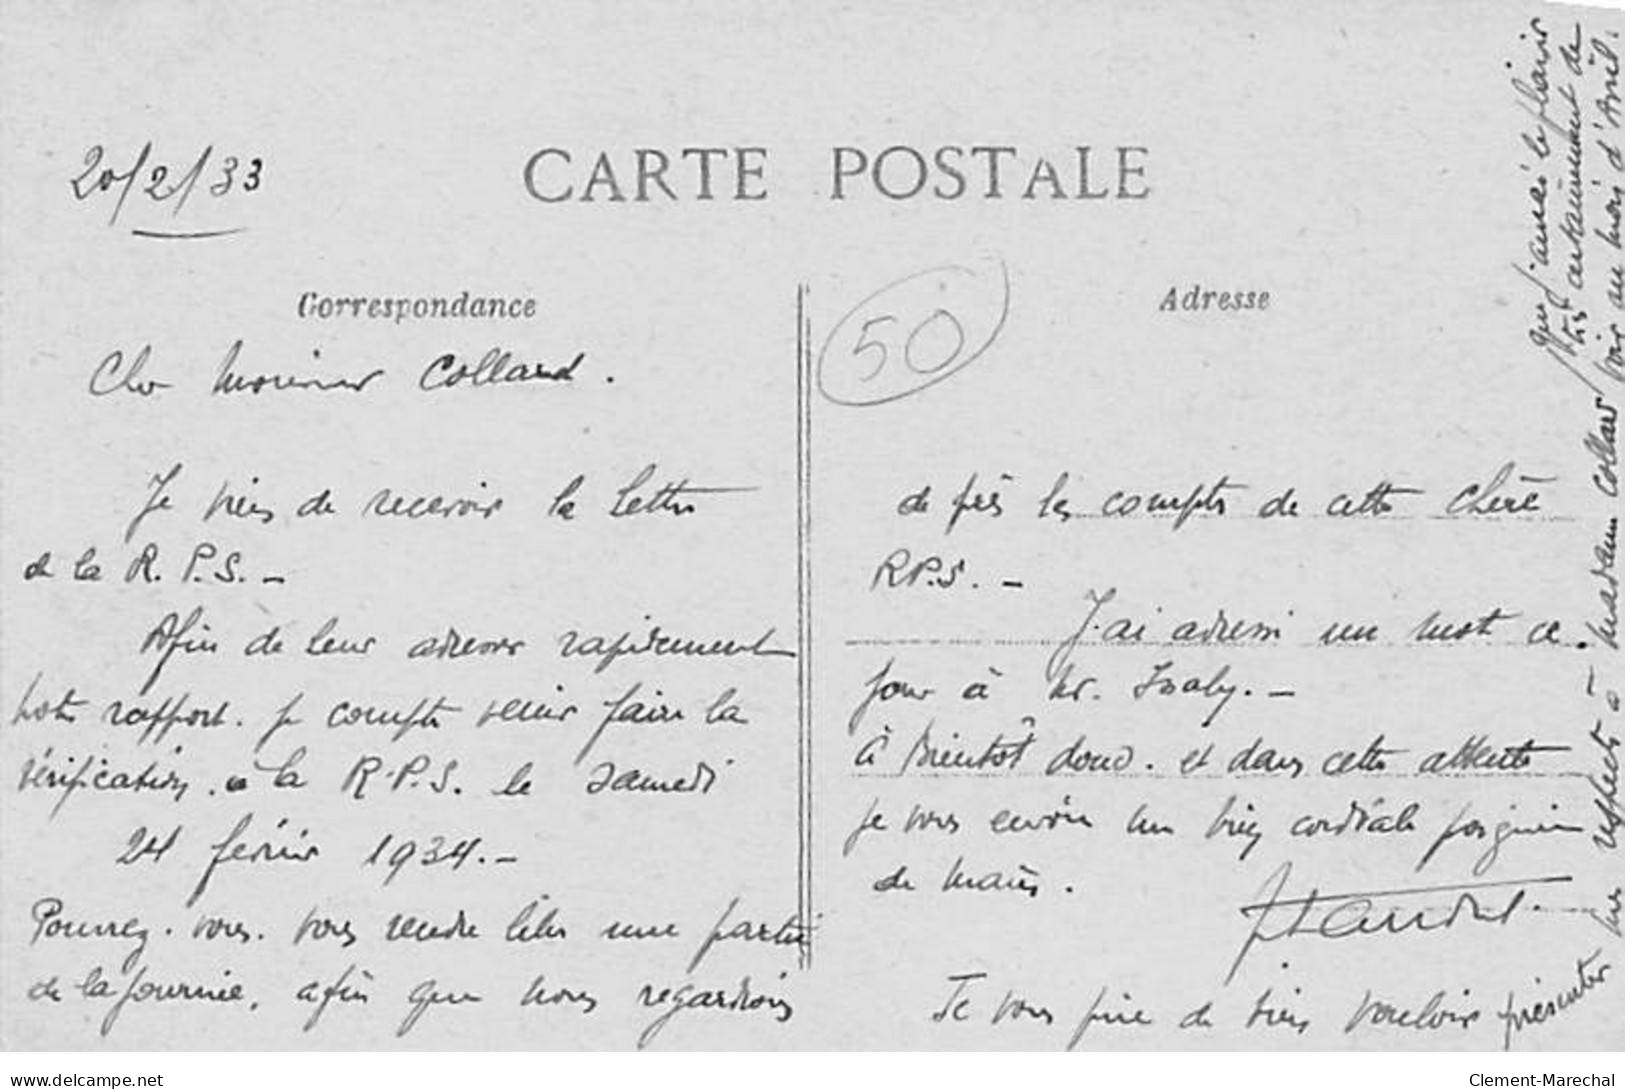 20/2/33
CARTE POSTALE
Correspondance
Adresse
50
Cher Monsieur Collard.
Je viens de recevoir la lettre
de la R.P.S. -
Afin de leur adresser rapidement
notre rapport. je compte venir faire la
vérification. à la R.P.S. le samedi
24 février 1934. -
Pourrez-vous. vous rendre libre une partie
de la journée, afin que nous regardions
de près les comptes de cette chère
RP.S. -
J'ai adressé un mot ce
jour à Mr.
à Bientôt donc. et dans cette attente
je vous envoie un bien cordiale poignée
de mains.
Je vous prie de bien vouloir présenter
mes respects à Madame Collard
que j'aurai le plaisir
très certainement de
voir au mois d'Avril.
delcampe.net
Clement-Marechal